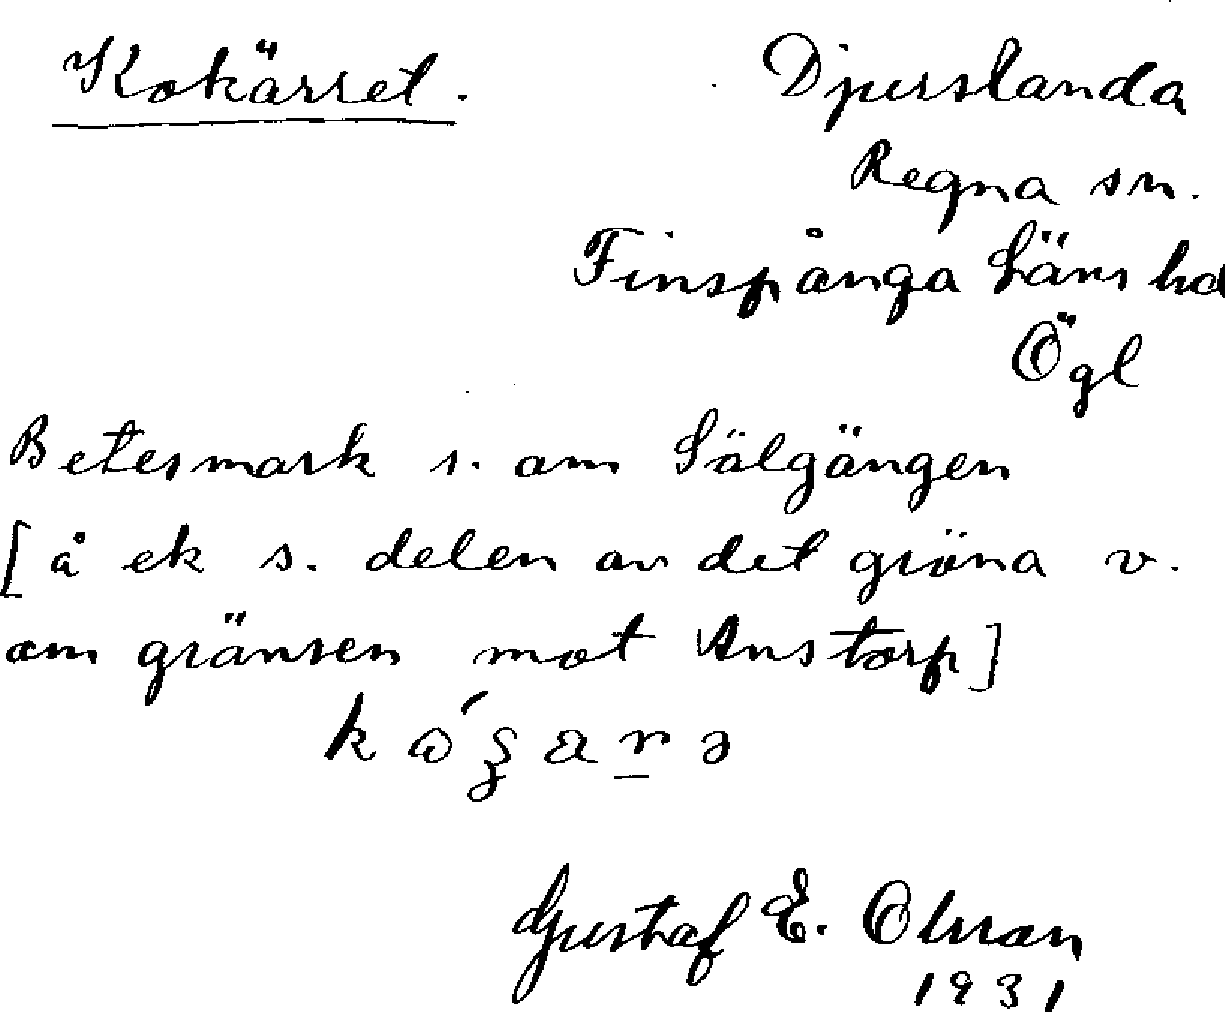 Kokärret.
Djurslanda
Regna sn.
Finspånga Läns hd
Ögl
Betesmark s. om Sälgängen
[å ek s. delen av det gröna v.
om gränsen mot Anstorp]
Gustaf E. Olsson
1931